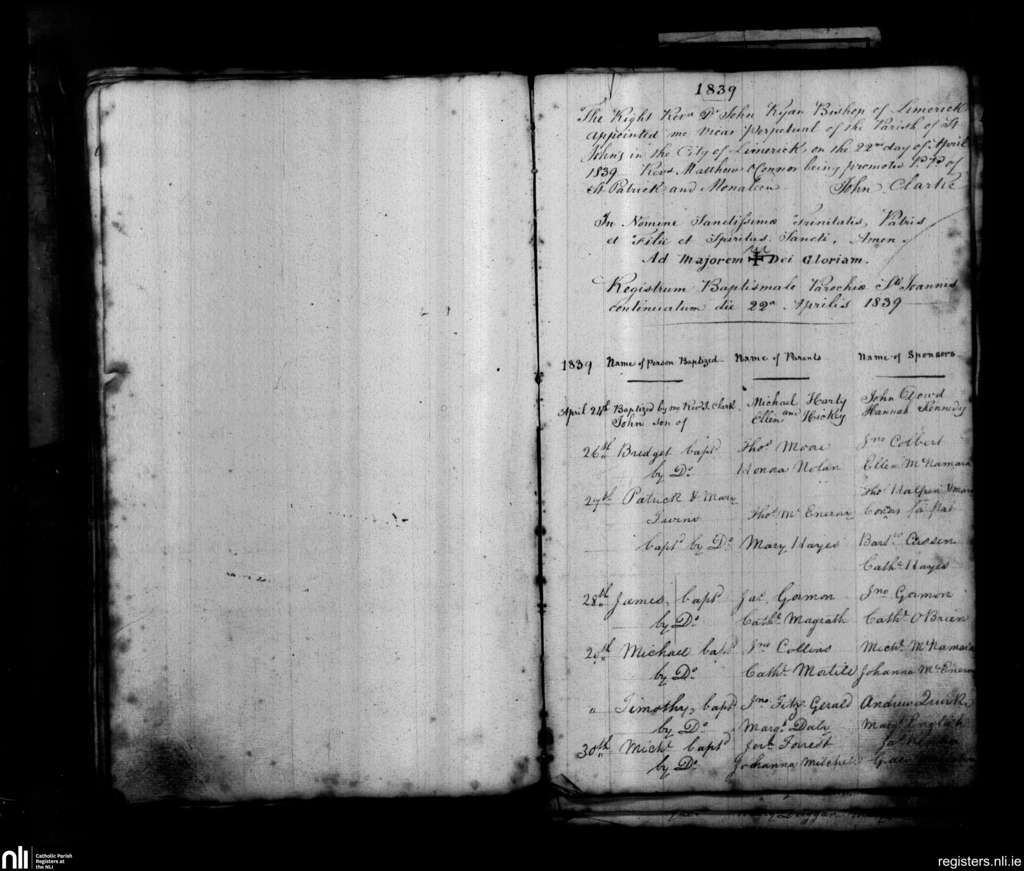 1839
The Right Revd Dr John Ryan Bishop of Limerick
appointed me Vicar perpetual of the Parish of St
John's in the City of Limerick on the 22nd day of April
1839 Revd Matthew O'Connor being promoted P.P. of
St Patrick and Monaleen John Clarke
In Nomine Sanctissimæ Trinitatis, Patris
et Filii et Spiritus Sancti, Amen.
Ad Majorem Dei Gloriam.
Registrum Baptismale Parochiæ Sti Joannis
continuatum die 22a Aprilis 1839
1839 Name of Person Baptized Name of Parents Name of Sponsors
April 24th Baptized by me Revd J. Clarke Michael Harty John Dowd
John son of Ellen and Hickey Hannah Kennedy
26th Bridget bapd Thos Moore Jno Colbert
by Do Honora Nolan Ellen McNamara
27th Patrick & Mary Thos Halpin
Twins Thos McEnerny
bapd by Do Mary Hayes Cussen
Cathe Hayes
28th James, bapd Jas Gorman Jno Gorman
by Do Cathe Magrath Cathe O'Brien
29th Michael bapd Jno Collins Michl McNamara
by Do Cathe Johanna
" Timothy, bapd Jno Fitz Gerald Andrew Quirke
by Do Margt Daly Margt English
30th Michl bapd Forrest
by Do Johanna Mitchel
Catholic Parish
Registers at
the NLI
nli
registers.nli.ie